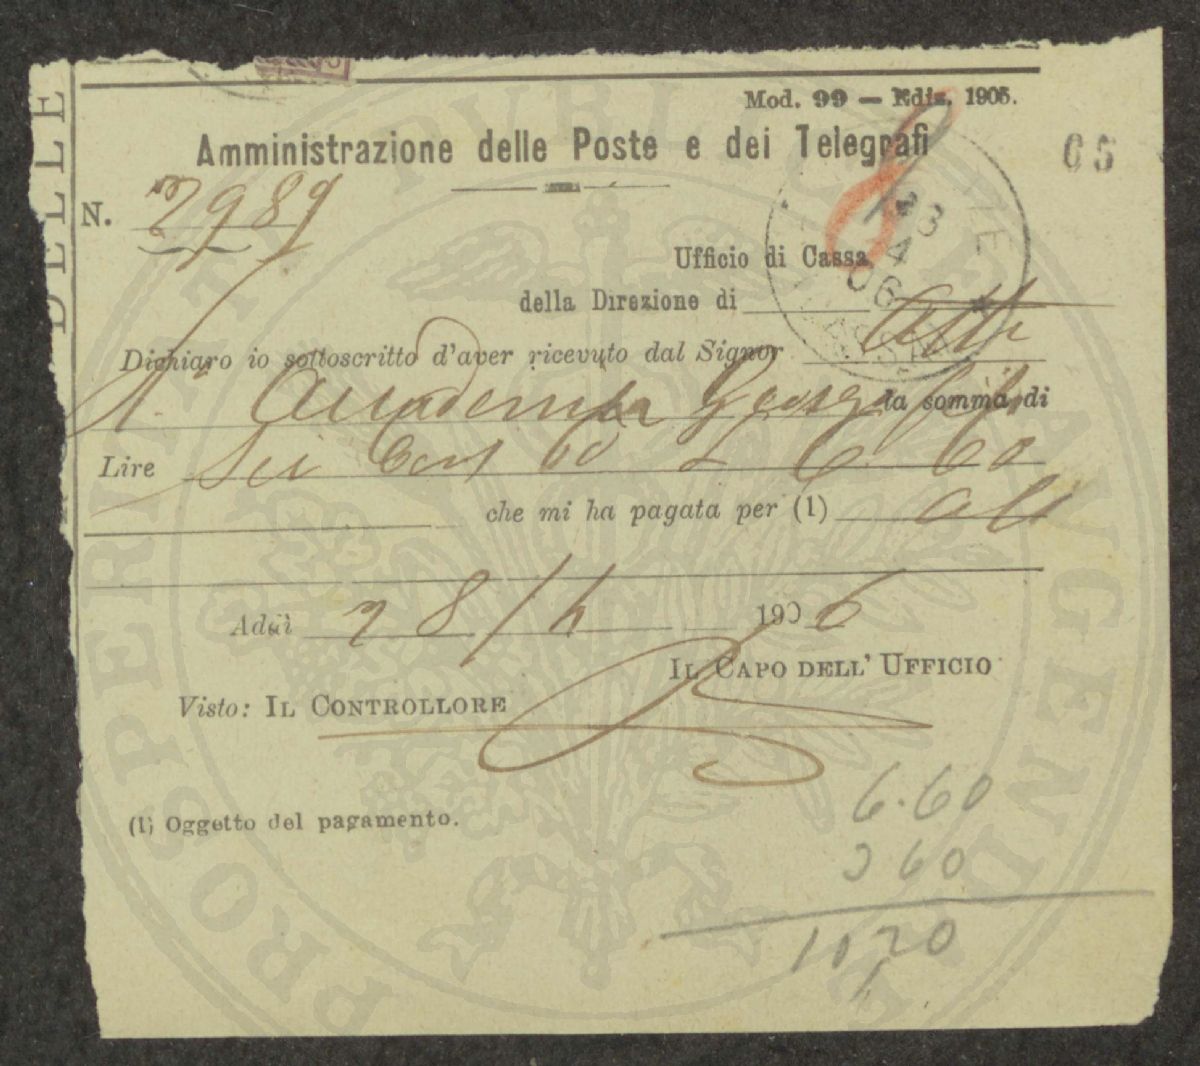 Mod. 99 — Ediz. 1905.
65
Amministrazione delle Poste e dei Telegrafi
N. 2989
DELLE
23
4
06
Ufficio di Cassa
della Direzione di
Dichiaro io sottoscritto d'aver ricevuto dal Signor
Accademia la somma di
Lire Sei Cent 60 6 60
che mi ha pagata per (1)
Addì 28/4 1906
IL CAPO DELL' UFFICIO
Visto: IL CONTROLLORE
(1) Oggetto del pagamento.
6.60
360
10 20
PROSPERITATI PUBLICAE AVGENDAE